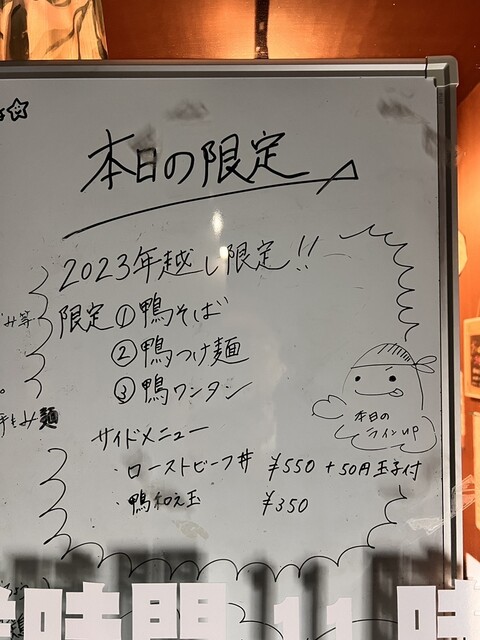 本日の限定
2023年越し限定!!
限定 ① 鴨そば
② 鴨つけ麺
③ 鴨ワンタン
本日の
ラインup
サイドメニュー
・ローストビーフ丼 ¥550 +50円玉子付
・鴨和え玉 ¥350
み等
手もみ麺
時間 11 時